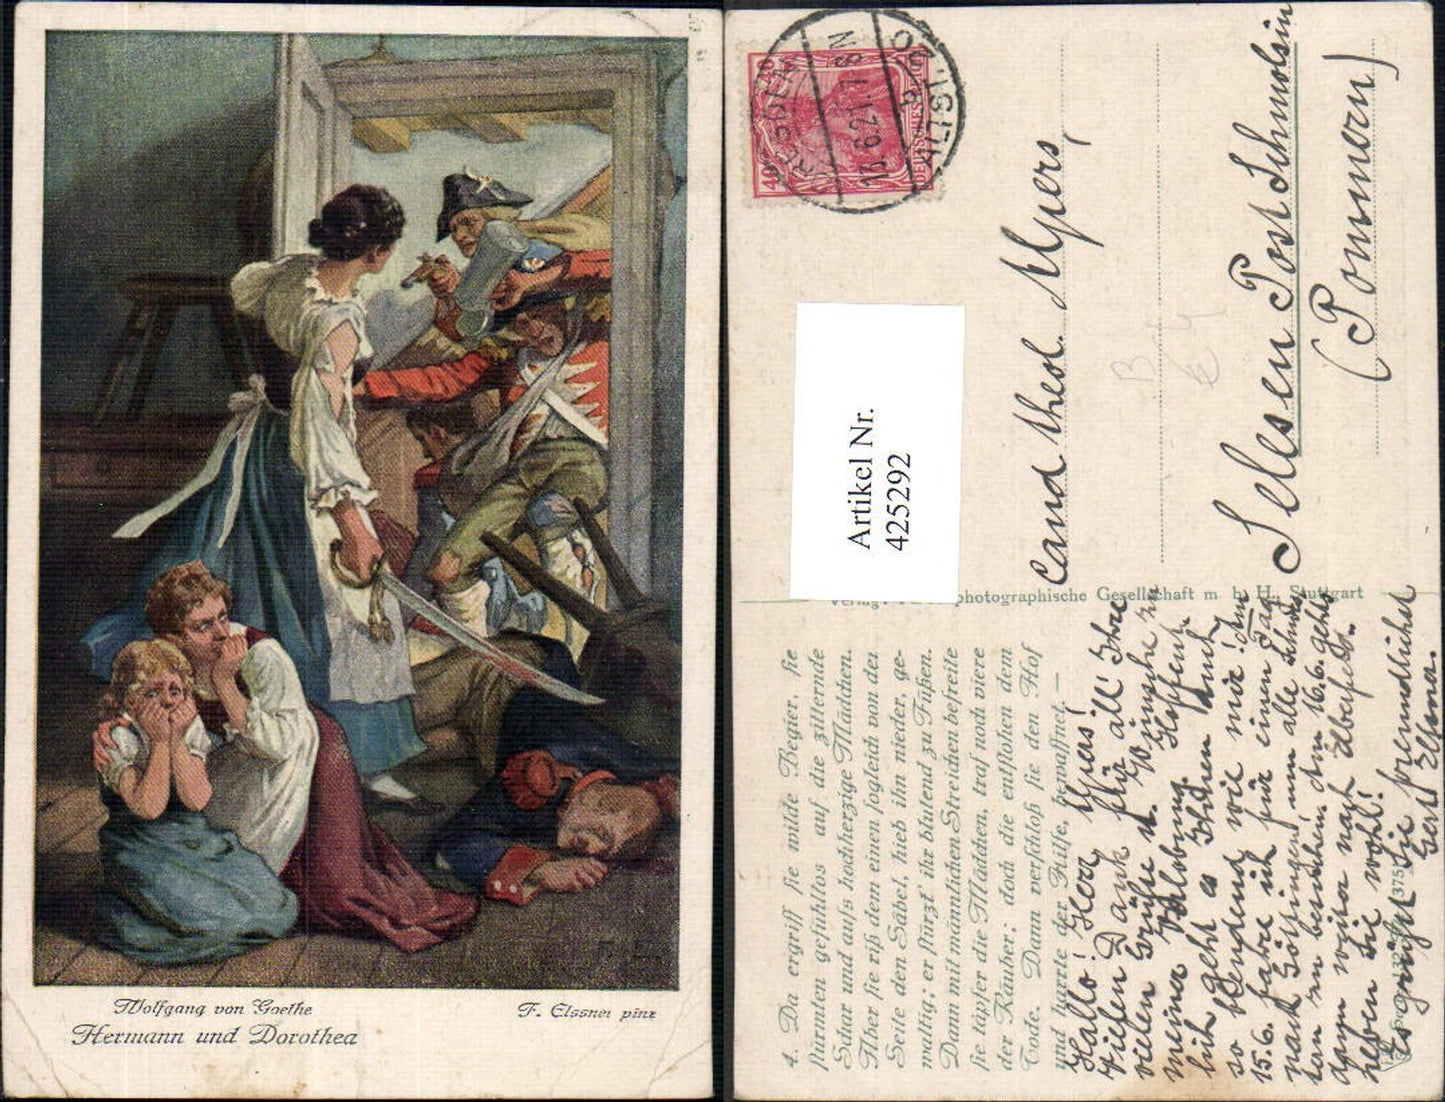 Wolfgang von Goethe
F. Elssner pinx
Hermann und Dorothea
DRESDEN
13.6.21.7-8N
ALTST. 20
40
DEUTSCHES REICH
Artikel Nr.
425292
Cand theol. Myers,
Selesen Post Schmolsin
(Pommern)
photographische Gesellschaft m. b. H., Stuttgart
4. Da ergriff sie wilde Begier, sie
stürmten gefühllos auf die zitternde
Schar und aufs hochherzige Mädchen.
Aber sie riß dem einen sogleich von der
Seite den Säbel, hieb ihn nieder, ge-
waltig; er stürzt' ihr blutend zu Füßen.
Dann mit männlichen Streichen befreite
sie tapfer die Mädchen, traf noch viere
der Räuber; doch die entflohen dem
Tode. Dann verschloß sie den Hof
und harrte der Hilfe, bewaffnet. —
Hallo! Herr Myers!
Vielen Dank für all' Ihre
vielen Grüße u. Wünsche zu
meiner Hoffent-
lich geht es Ihnen auch
so wie mir! Am
15.6. fahre ich für einen Tag
nach Göttingen um alle
zu besuchen. Am 16.6. geht's
dann weiter nach
leben Sie wohl!
Es grüßt Sie freundlichst
Gertl Elsna.